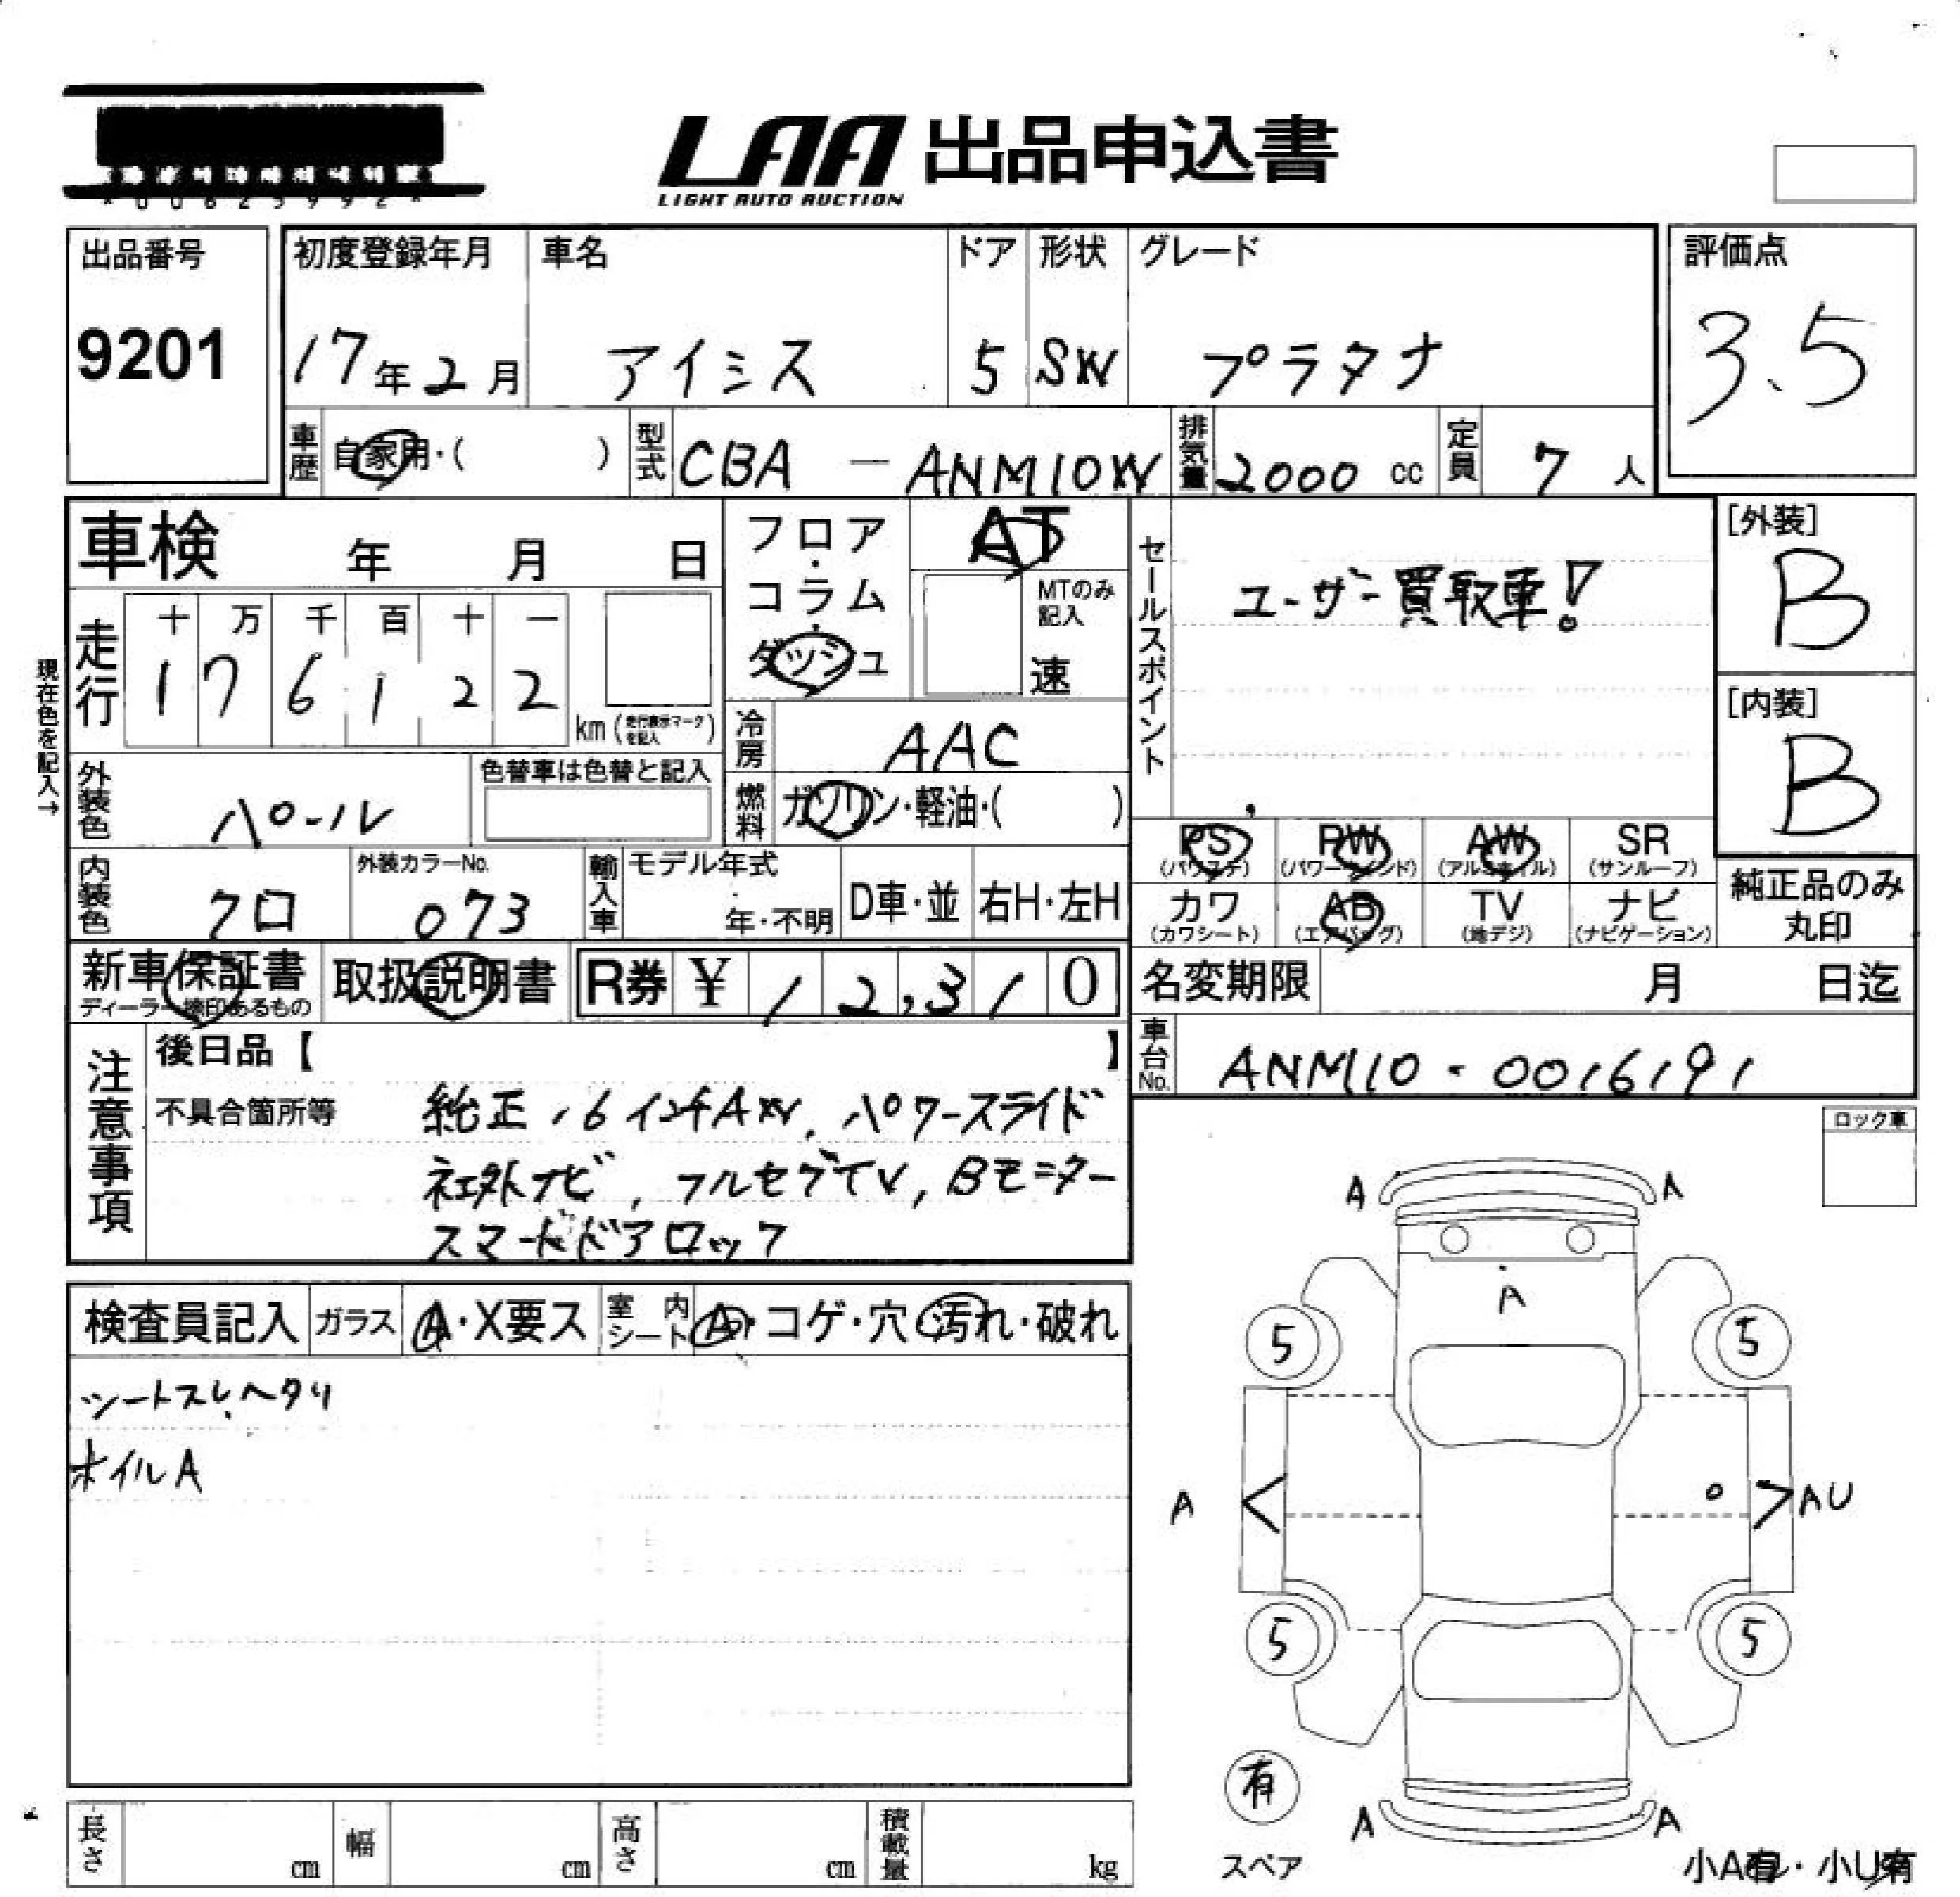 LAA 出品申込書
LIGHT AUTO AUCTION
出品番号
9201
初度登録年月
17年2月
車名
アイシス
ドア
5
形状
SW
グレード
プラタナ
評価点
3.5
車歴
自家用・( )
型式
CBA - ANM10W
排気量
2000 cc
定員
7 人
車検 年 月 日
フロア・コラム・ダッシュ
AT
MTのみ記入
速
セールスポイント
ユーザー買取車!
[外装]
B
[内装]
B
現在色を記入→
走行
十 万 千 百 十 一
1 7 6 1 2 2
km (走行表示マークを記入)
冷房
AAC
外装色
パール
色替車は色替と記入
燃料
ガソリン・軽油・( )
PS (パワステ)
PW (パワーウインド)
AW (アルミホイル)
SR (サンルーフ)
カワ (カワシート)
AB (エアバッグ)
TV (地デジ)
ナビ (ナビゲーション)
純正品のみ丸印
内装色
クロ
外装カラーNo.
073
輸入車
モデル年式
年・不明
D車・並
右H・左H
新車保証書
ディーラー捺印あるもの
取扱説明書
R券 ¥ 12,310
名変期限 月 日迄
車台No.
ANM10-0016191
注意事項
後日品【 】
不具合箇所等
純正16インチAW、パワースライド
社外ナビ, フルセグTV, Bモニター
スマートドアロック
ロック車
検査員記入
ガラス A・X要ス
室内シート A・コゲ・穴・汚れ・破れ
シートスレ、ヘタリ
ホイルA
A A
A
5 5
A AU
5 5
有
スペア
A A
小A有・小U有
長さ cm
幅 cm
高さ cm
積載量 kg